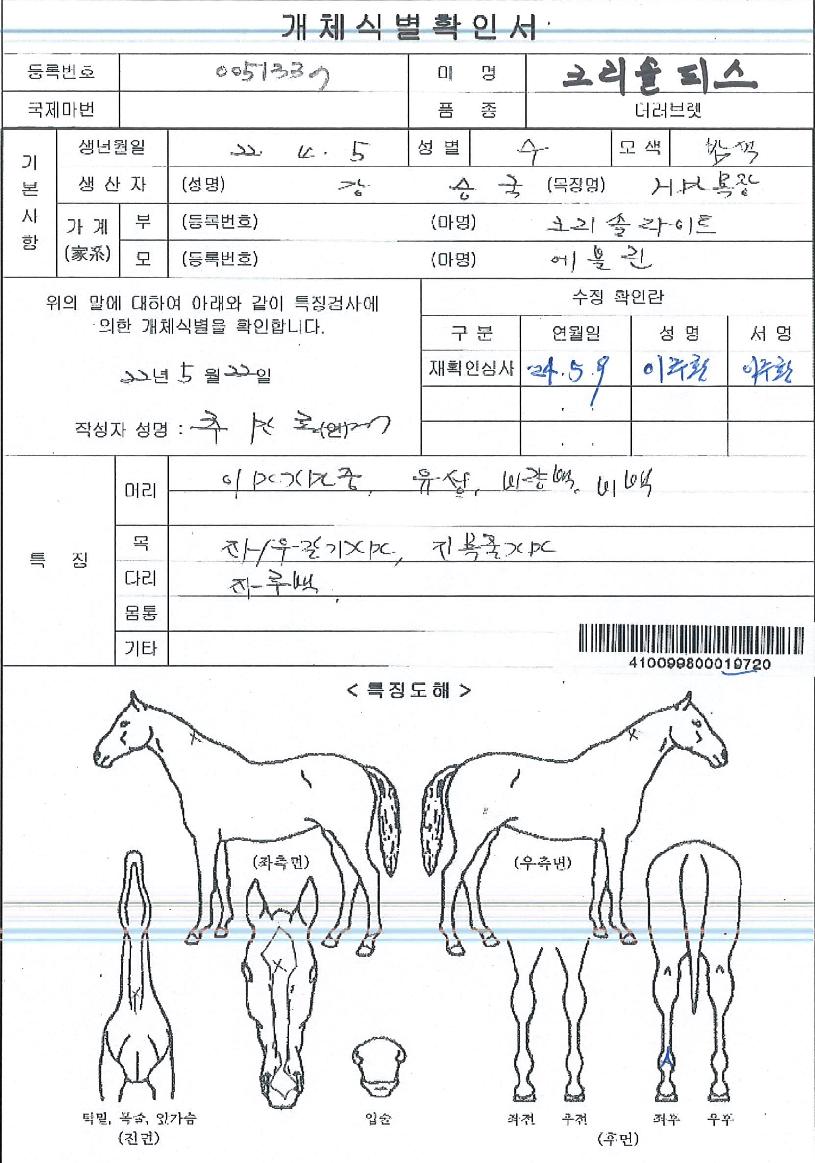 개체식별확인서
등록번호 0051339 마 명 크리솔피스
국제마번 품 종 더러브렛
기본사항
생년월일 22. 4. 5 성별 수 모색
생산자 (성명) 강 승 국 (목장명) 목장
가계 (家系) 부 (등록번호) (마명) 크리솔라이트
모 (등록번호) (마명) 에블린
위의 말에 대하여 아래와 같이 특징검사에
의한 개체식별을 확인합니다.
22년 5월 22일
작성자 성명 : (인)
수정 확인란
구분 연월일 성명 서명
재확인심사 24. 5. 9 이주환 이주환
특 징
머리 유성, 비량백, 비백
목
다리 좌후백
몸통
기타
410099800019720
< 특징도해 >
(좌측면) (우측면)
턱밑, 목술, 앞가슴 입술 좌전 우전 좌후 우후
(전면) (후면)